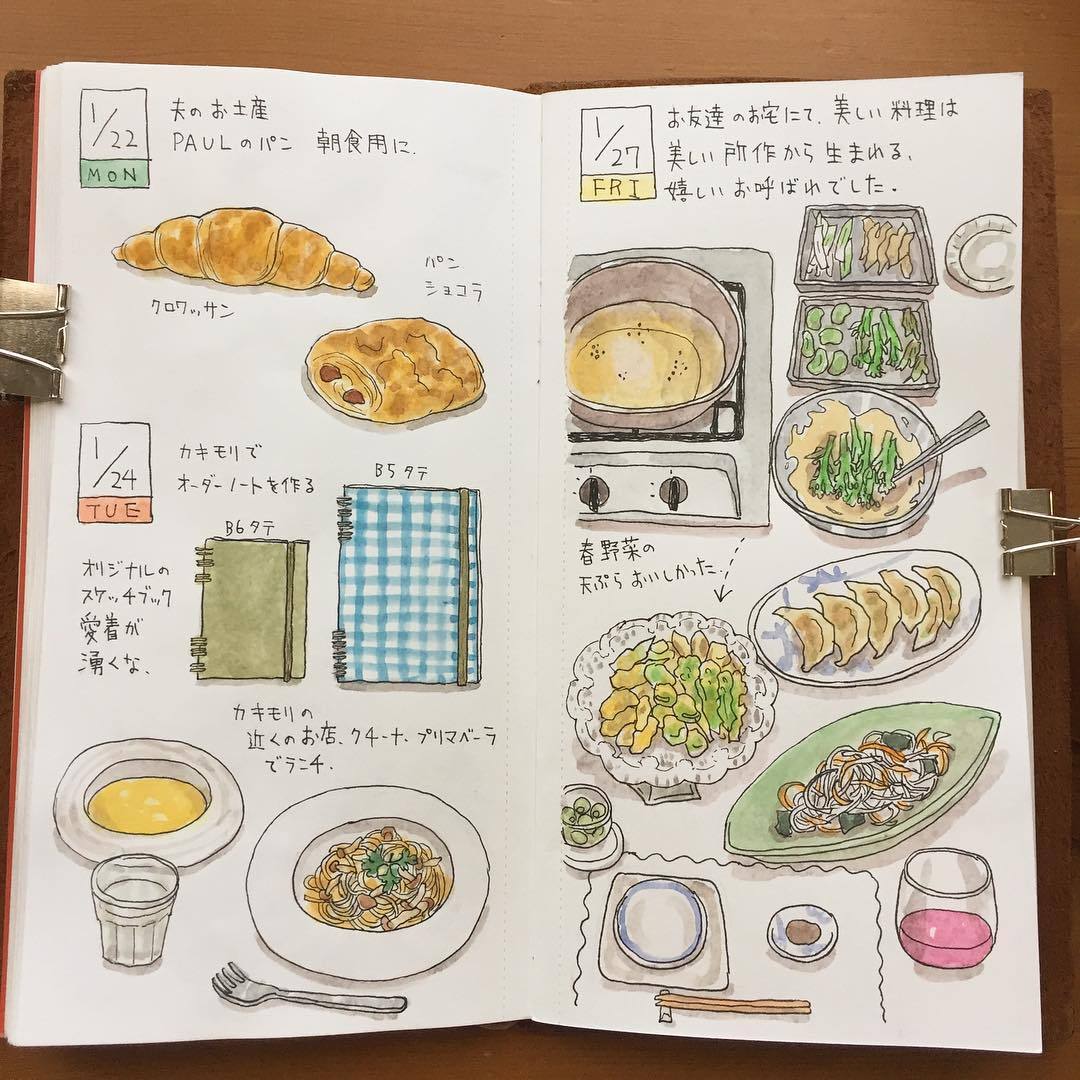 1/22
MON
夫のお土産
PAULのパン 朝食用に.
クロワッサン
パン
ショコラ
1/24
TUE
カキモリで
オーダーノートを作る
B6タテ
B5タテ
オリジナルの
スケッチブック
愛着が
湧くな、
カキモリの
近くのお店、クチーナ、プリマベーラ
でランチ.
1/27
FRI
お友達のお宅にて、美しい料理は
美しい所作から生まれる、
嬉しいお呼ばれでした.
春野菜の
天ぷらおいしかった.